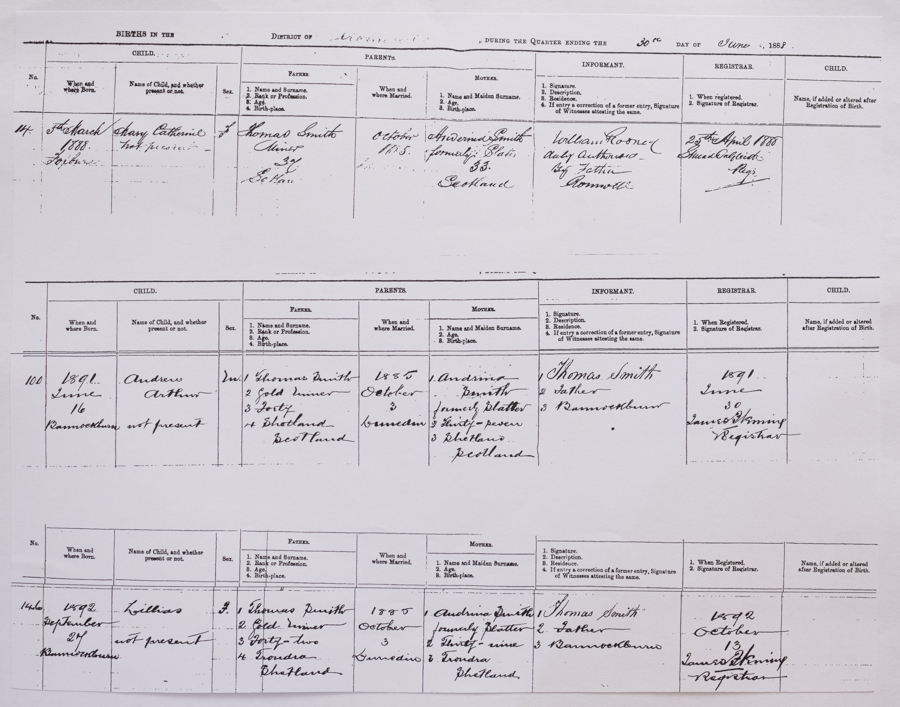 BIRTHS IN THE DISTRICT OF DURING THE QUARTER ENDING THE 30th DAY OF June 1888.
CHILD. PARENTS. INFORMANT. REGISTRAR. CHILD.
No.
When and where Born.
Name of Child, and whether present or not.
Sex.
FATHER.
1. Name and Surname.
2. Rank or Profession.
3. Age.
4. Birth-place.
When and where Married.
MOTHER.
1. Name and Maiden Surname.
2. Age.
3. Birth-place.
1. Signature.
2. Description.
3. Residence.
4. If entry a correction of a former entry, Signature of Witnesses attesting the same.
1. When registered.
2. Signature of Registrar.
Name, if added or altered after Registration of Birth.
14
5th March
1888.
Mary Catherine
not present
F
Thomas Smith
Miner
37
October
1885.
Smith
formerly
33.
Scotland
William Rooney
duly Authorised
By Father
Cromwell
25th April 1888
Regr
CHILD. PARENTS. INFORMANT. REGISTRAR. CHILD.
No.
When and where Born.
Name of Child, and whether present or not.
Sex.
FATHER.
1. Name and Surname.
2. Rank or Profession.
3. Age.
4. Birth-place.
When and where Married.
MOTHER.
1. Name and Maiden Surname.
2. Age.
3. Birth-place.
1. Signature.
2. Description.
3. Residence.
4. If entry a correction of a former entry, Signature of Witnesses attesting the same.
1. When Registered.
2. Signature of Registrar.
Name, if added or altered after Registration of Birth.
100
1891
June
16
Bannockburn
Andrew
Arthur
not present
M.
1 Thomas Smith
2 Gold Miner
3 Forty
4 Shetland
Scotland
1885
October
3
Dunedin
1. Andrina
Smith
formerly Slatter
2 Thirty-seven
3 Shetland
Scotland
1 Thomas Smith
2 Father
3 Bannockburn
1891
June
30
James
Registrar
No.
When and where Born.
Name of Child, and whether present or not.
Sex.
FATHER.
1. Name and Surname.
2. Rank or Profession.
3. Age.
4. Birth-place.
When and where Married.
MOTHER.
1. Name and Maiden Surname.
2. Age.
3. Birth-place.
1. Signature.
2. Description.
3. Residence.
4. If entry a correction of a former entry, Signature of Witnesses attesting the same.
1. When Registered.
2. Signature of Registrar.
Name, if added or altered after Registration of Birth.
146
1892
September
27
Bannockburn
Lillias
not present
F.
1 Thomas Smith
2. Gold Miner
3 Forty-two
4. Trondra
Shetland
1885
October
3
Dunedin
1 Andrina Smith
formerly Slatter
2 Thirty-nine
3 Trondra
Shetland
1 Thomas Smith
2 Father
3 Bannockburn
1892
October
13
James
Registrar